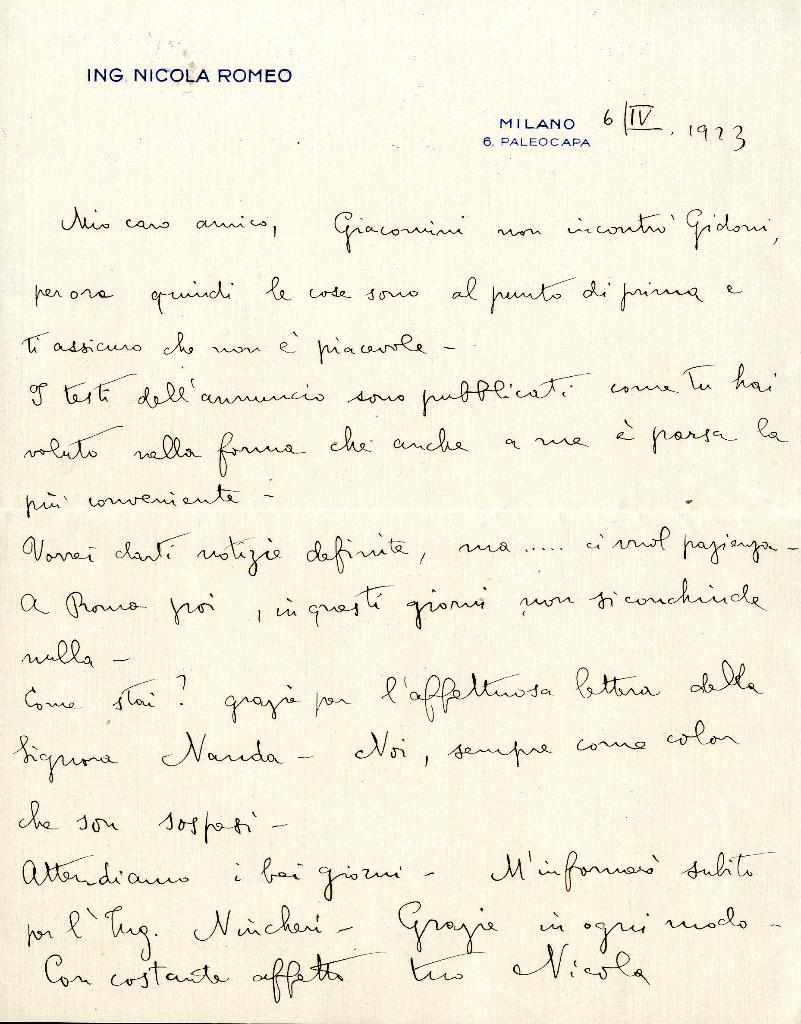 ING. NICOLA ROMEO
MILANO 6/IV. 1923
6, PALEOCAPA
Mio caro amico, Giacomini non incontrò Gidoni,
per ora quindi le cose sono al punto di prima e
ti assicuro che non è piacevole –
I testi dell'annuncio sono pubblicati come Tu hai
voluto nella forma che anche a me è parsa la
più conveniente –
Vorrei darti notizie definite, ma ..... ci vuol pazienza –
A Roma poi, in questi giorni non si conchiude
nulla –
Come stai? grazie per l'affettuosa lettera della
Signora Nanda – Noi, sempre come color
che son sospesi –
Attendiamo i bei giorni – M'informerò subito
per l'Ing. Nincheri – Grazie in ogni modo –
Con costante affetto tuo Nicola